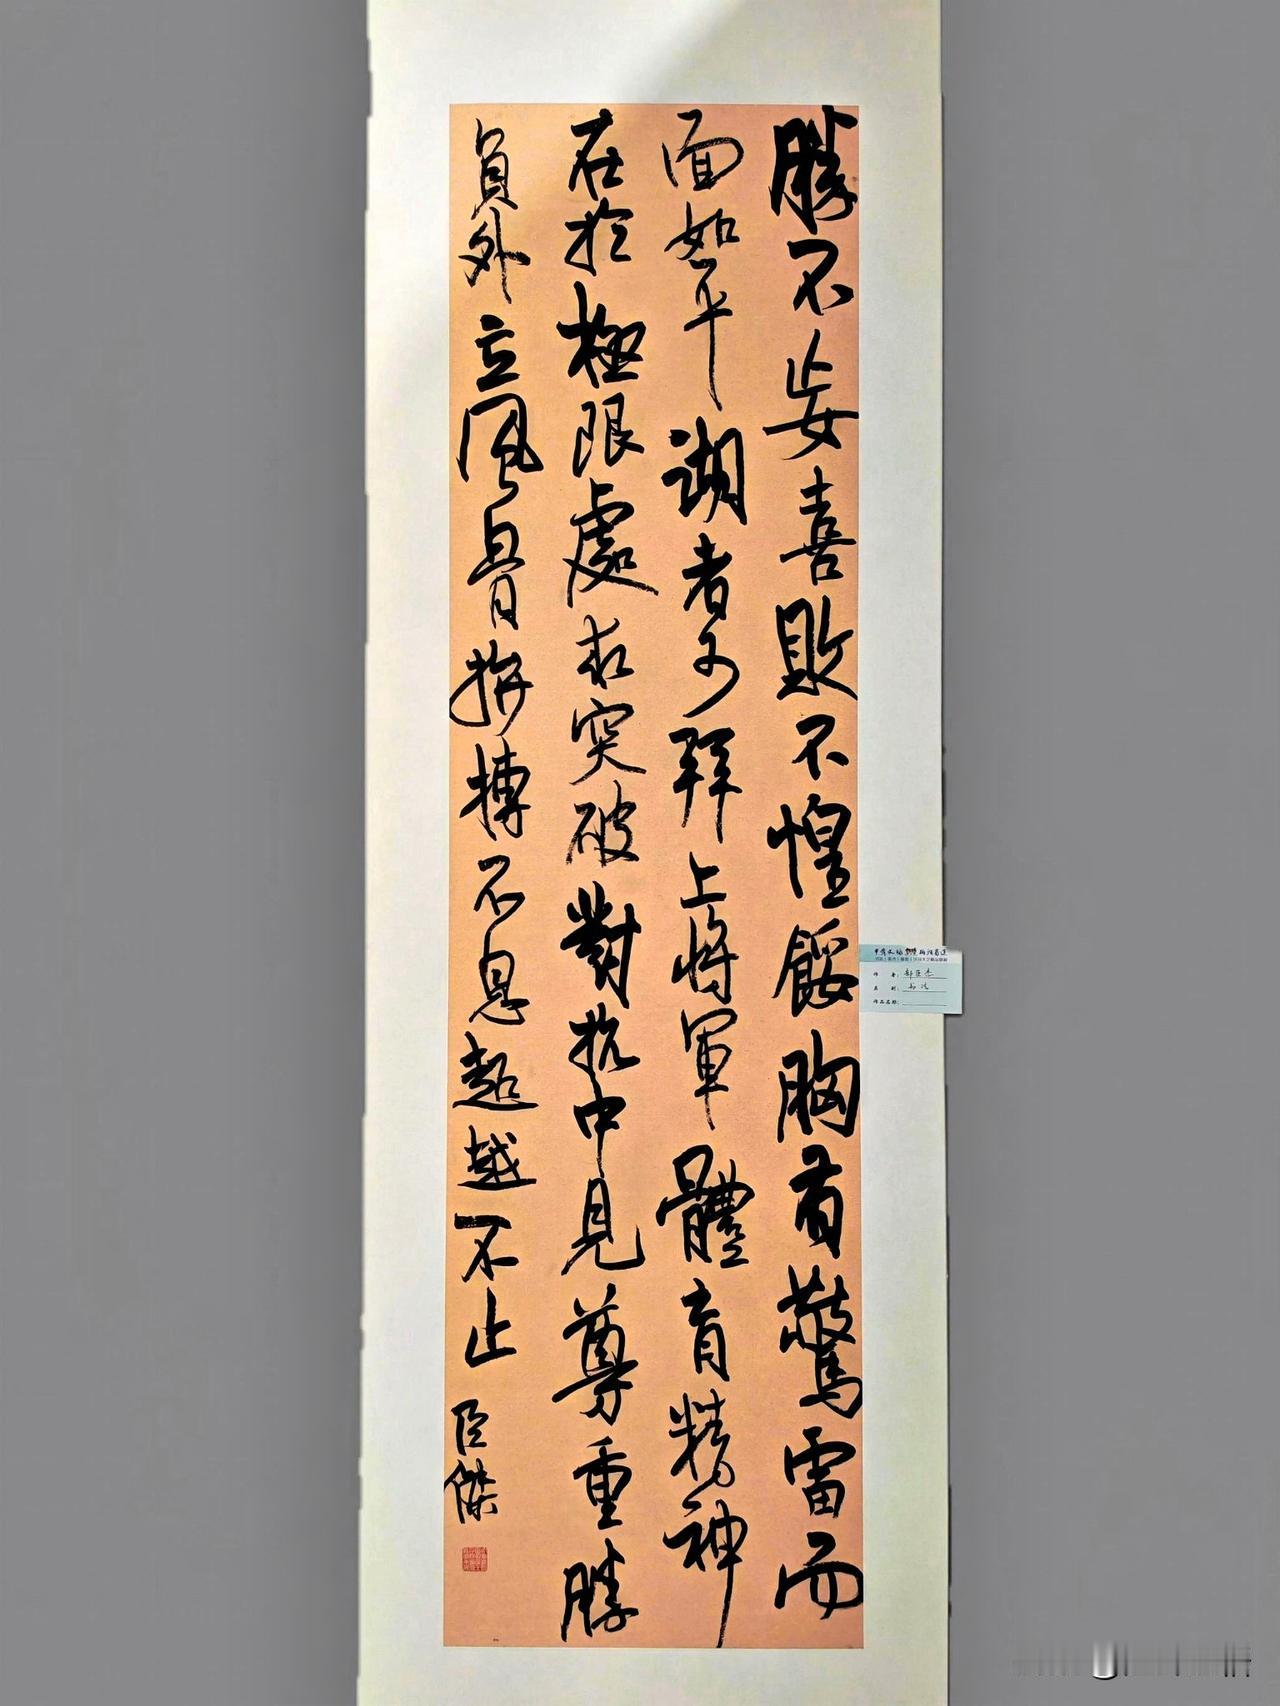 勝不妄喜敗不惶餒胸有驚雷而
面如平湖者可拜上將軍體育精神
在於極限處求突破對抗中見尊重勝
負外立風骨拼搏不息超越不止
臣傑
作 者: 臣杰
类 别: 书法
作品名称: